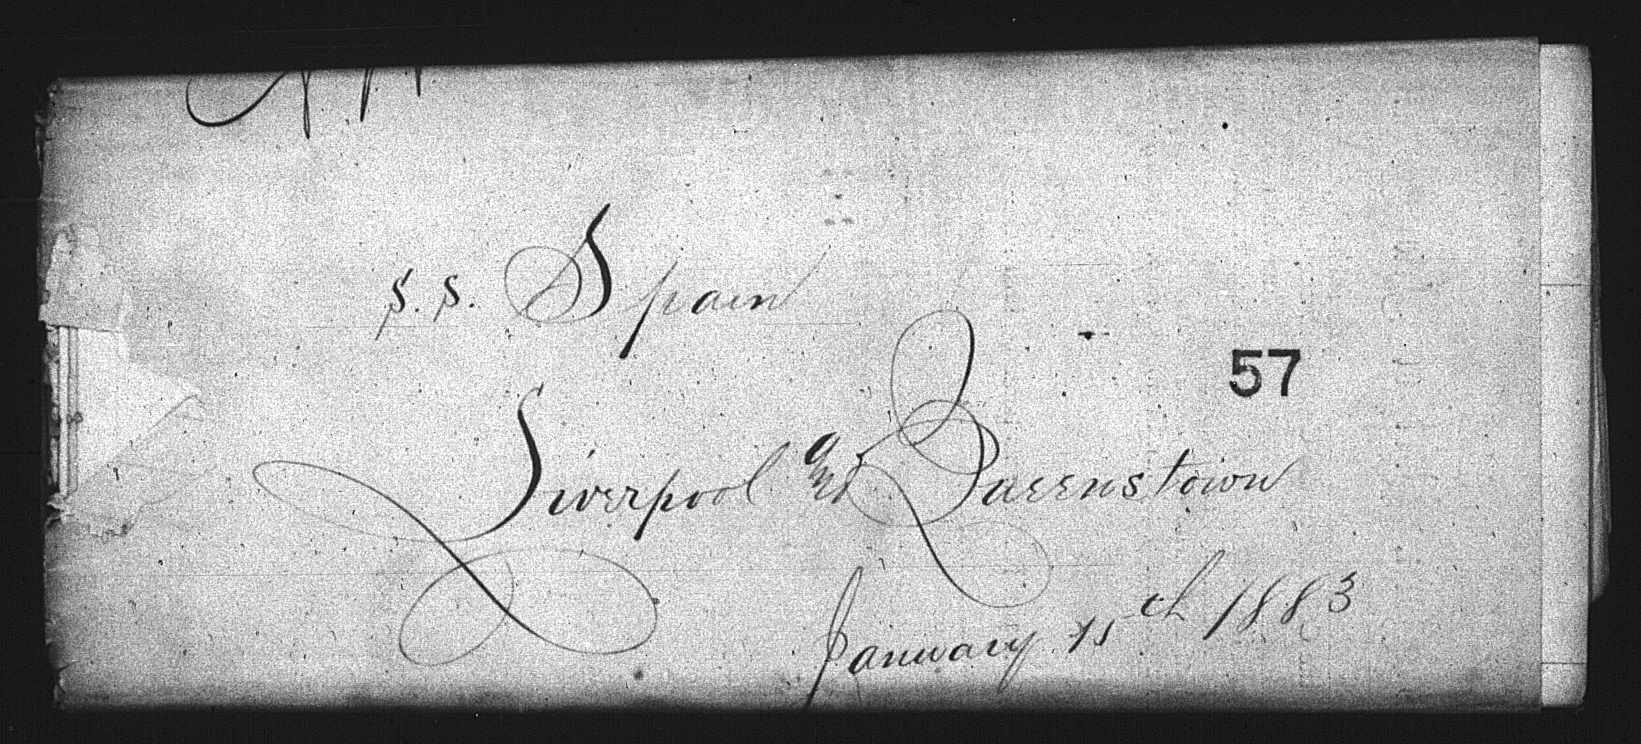 S.S. Spain
57
Liverpool and Queenstown
January 15th 1883